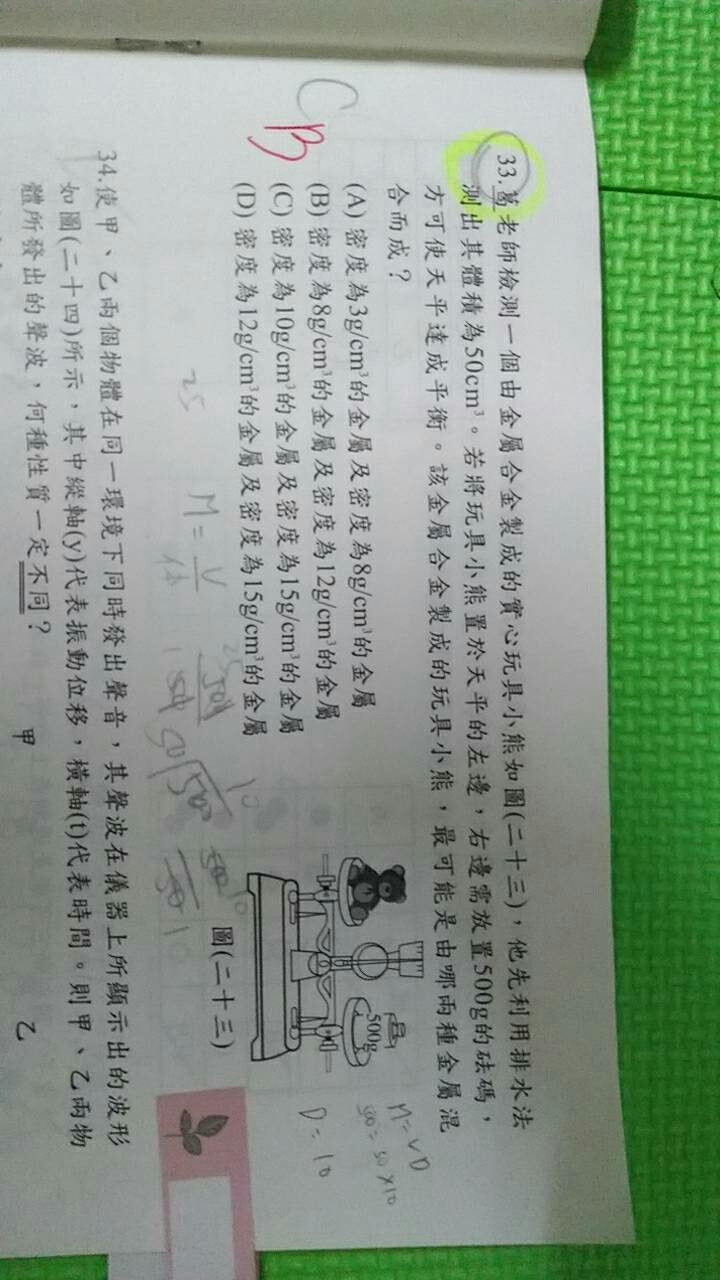 33.葛老師檢測一個由金屬合金製成的實心玩具小熊如圖(二十三)，他先利用排水法
測出其體積為50cm³。若將玩具小熊置於天平的左邊，右邊需放置500g的砝碼，
方可使天平達成平衡。該金屬合金製成的玩具小熊，最可能是由哪兩種金屬混
合而成？
C
B
(A) 密度為3g/cm³的金屬及密度為8g/cm³的金屬
(B) 密度為8g/cm³的金屬及密度為12g/cm³的金屬
(C) 密度為10g/cm³的金屬及密度為15g/cm³的金屬
(D) 密度為12g/cm³的金屬及密度為15g/cm³的金屬
500g
圖(二十三)
M=VD
500=50×10
D=10
25
M=V
10
50 500
34.使甲、乙兩個物體在同一環境下同時發出聲音，其聲波在儀器上所顯示出的波形
如圖(二十四)所示，其中縱軸(y)代表振動位移，橫軸(t)代表時間。則甲、乙兩物
體所發出的聲波，何種性質一定不同？
甲
乙